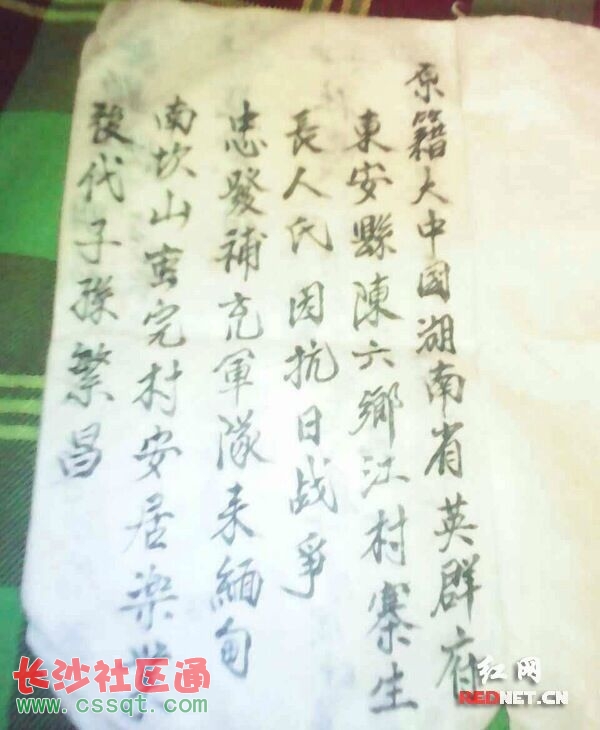 原籍大中國湖南省英群府
東安縣陳六鄉江村寨生
長人氏因抗日战爭
忠發補充軍隊来緬甸
南坎山蛮完村安居楽业
發代子孫繁昌
长沙社区通
www.cssqt.com
红网
REDNET.CN